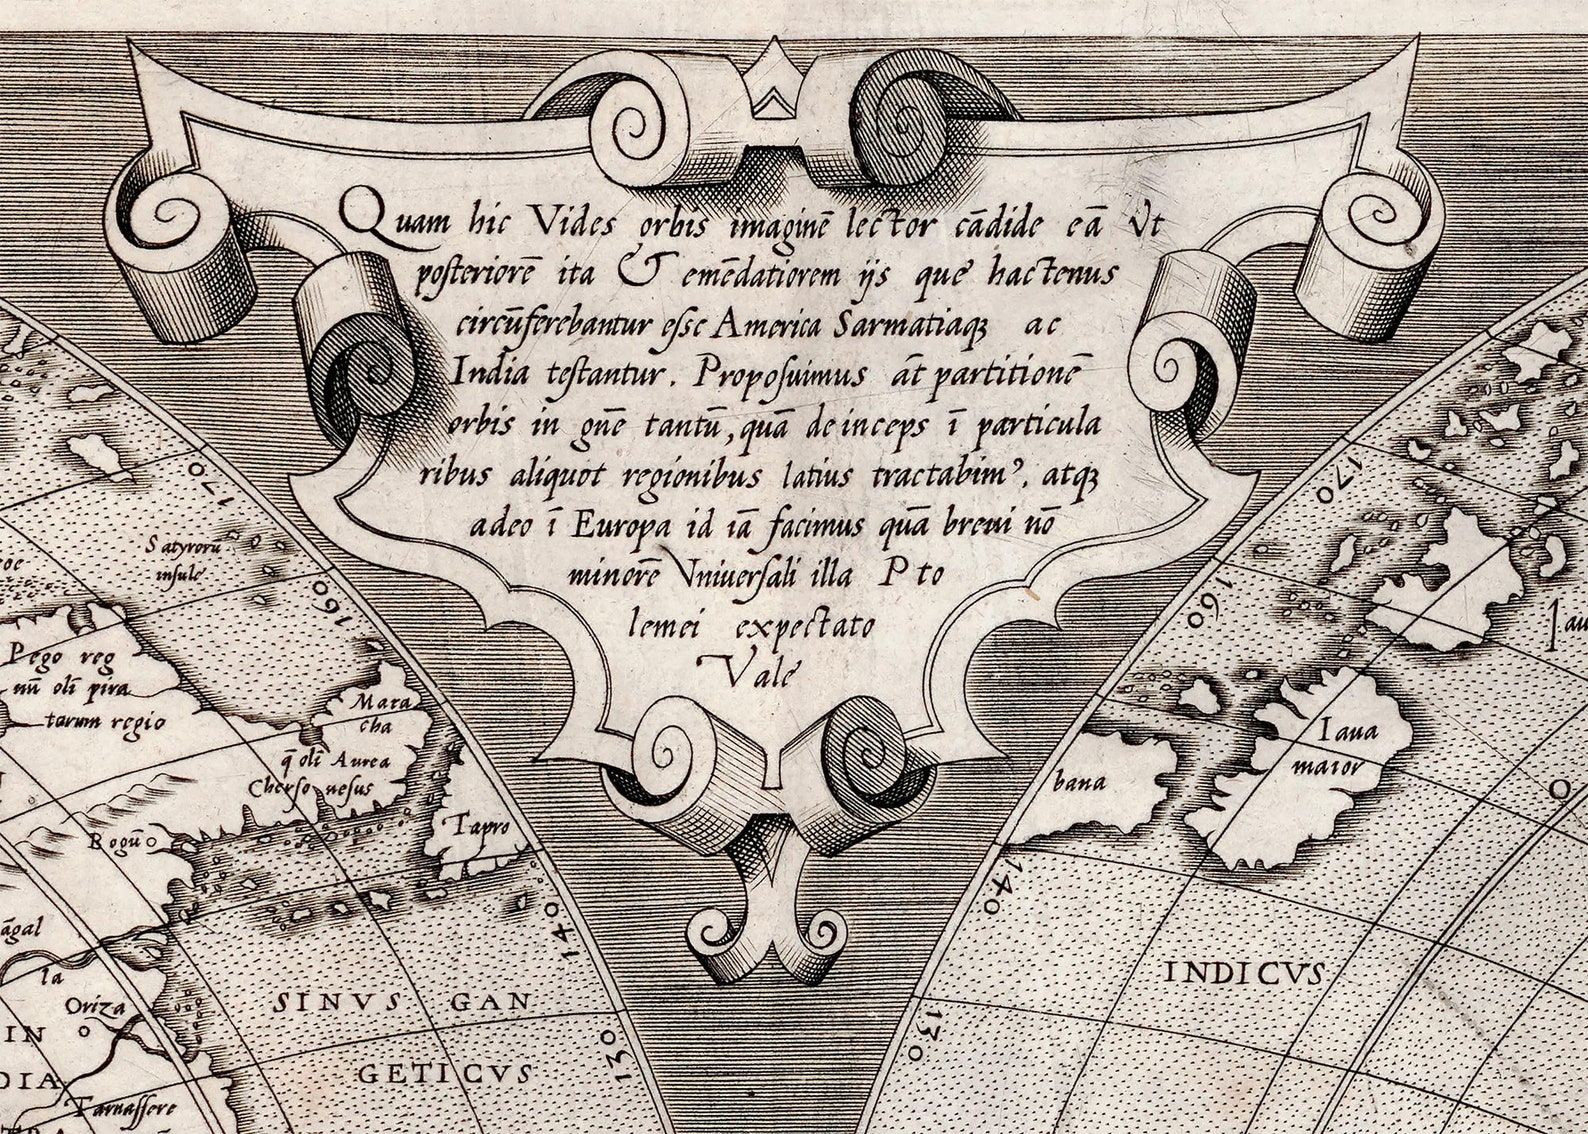 Quam hic Vides orbis imaginē lector cādide eā Vt
posteriorē ita & emēdatiorem ijs que hactenus
circūferebantur esse America Sarmatiaqꝫ ac
India testantur. Proposuimus āt partitionē
orbis in gńe tantū, quā deinceps ī particula
ribus aliquot regionibus latius tractabimꝰ, atqꝫ
adeo ī Europa id iā facimus quā breui nō
minorē Vniuersali illa Pto
lemei expectato
Vale
170
160
140
130
Satyrorū
insule
Pego reg
nū oli pira
tarum regio
Mara
cha
q̄ oli Aurea
Cherso nesus
Tapro
Bogū
āgal
la
Oriza
IN
DIA
Tarnassere
SINVS GAN
GETICVS
170
160
140
130
bana
Iaua
maior
I.au
0
INDICVS